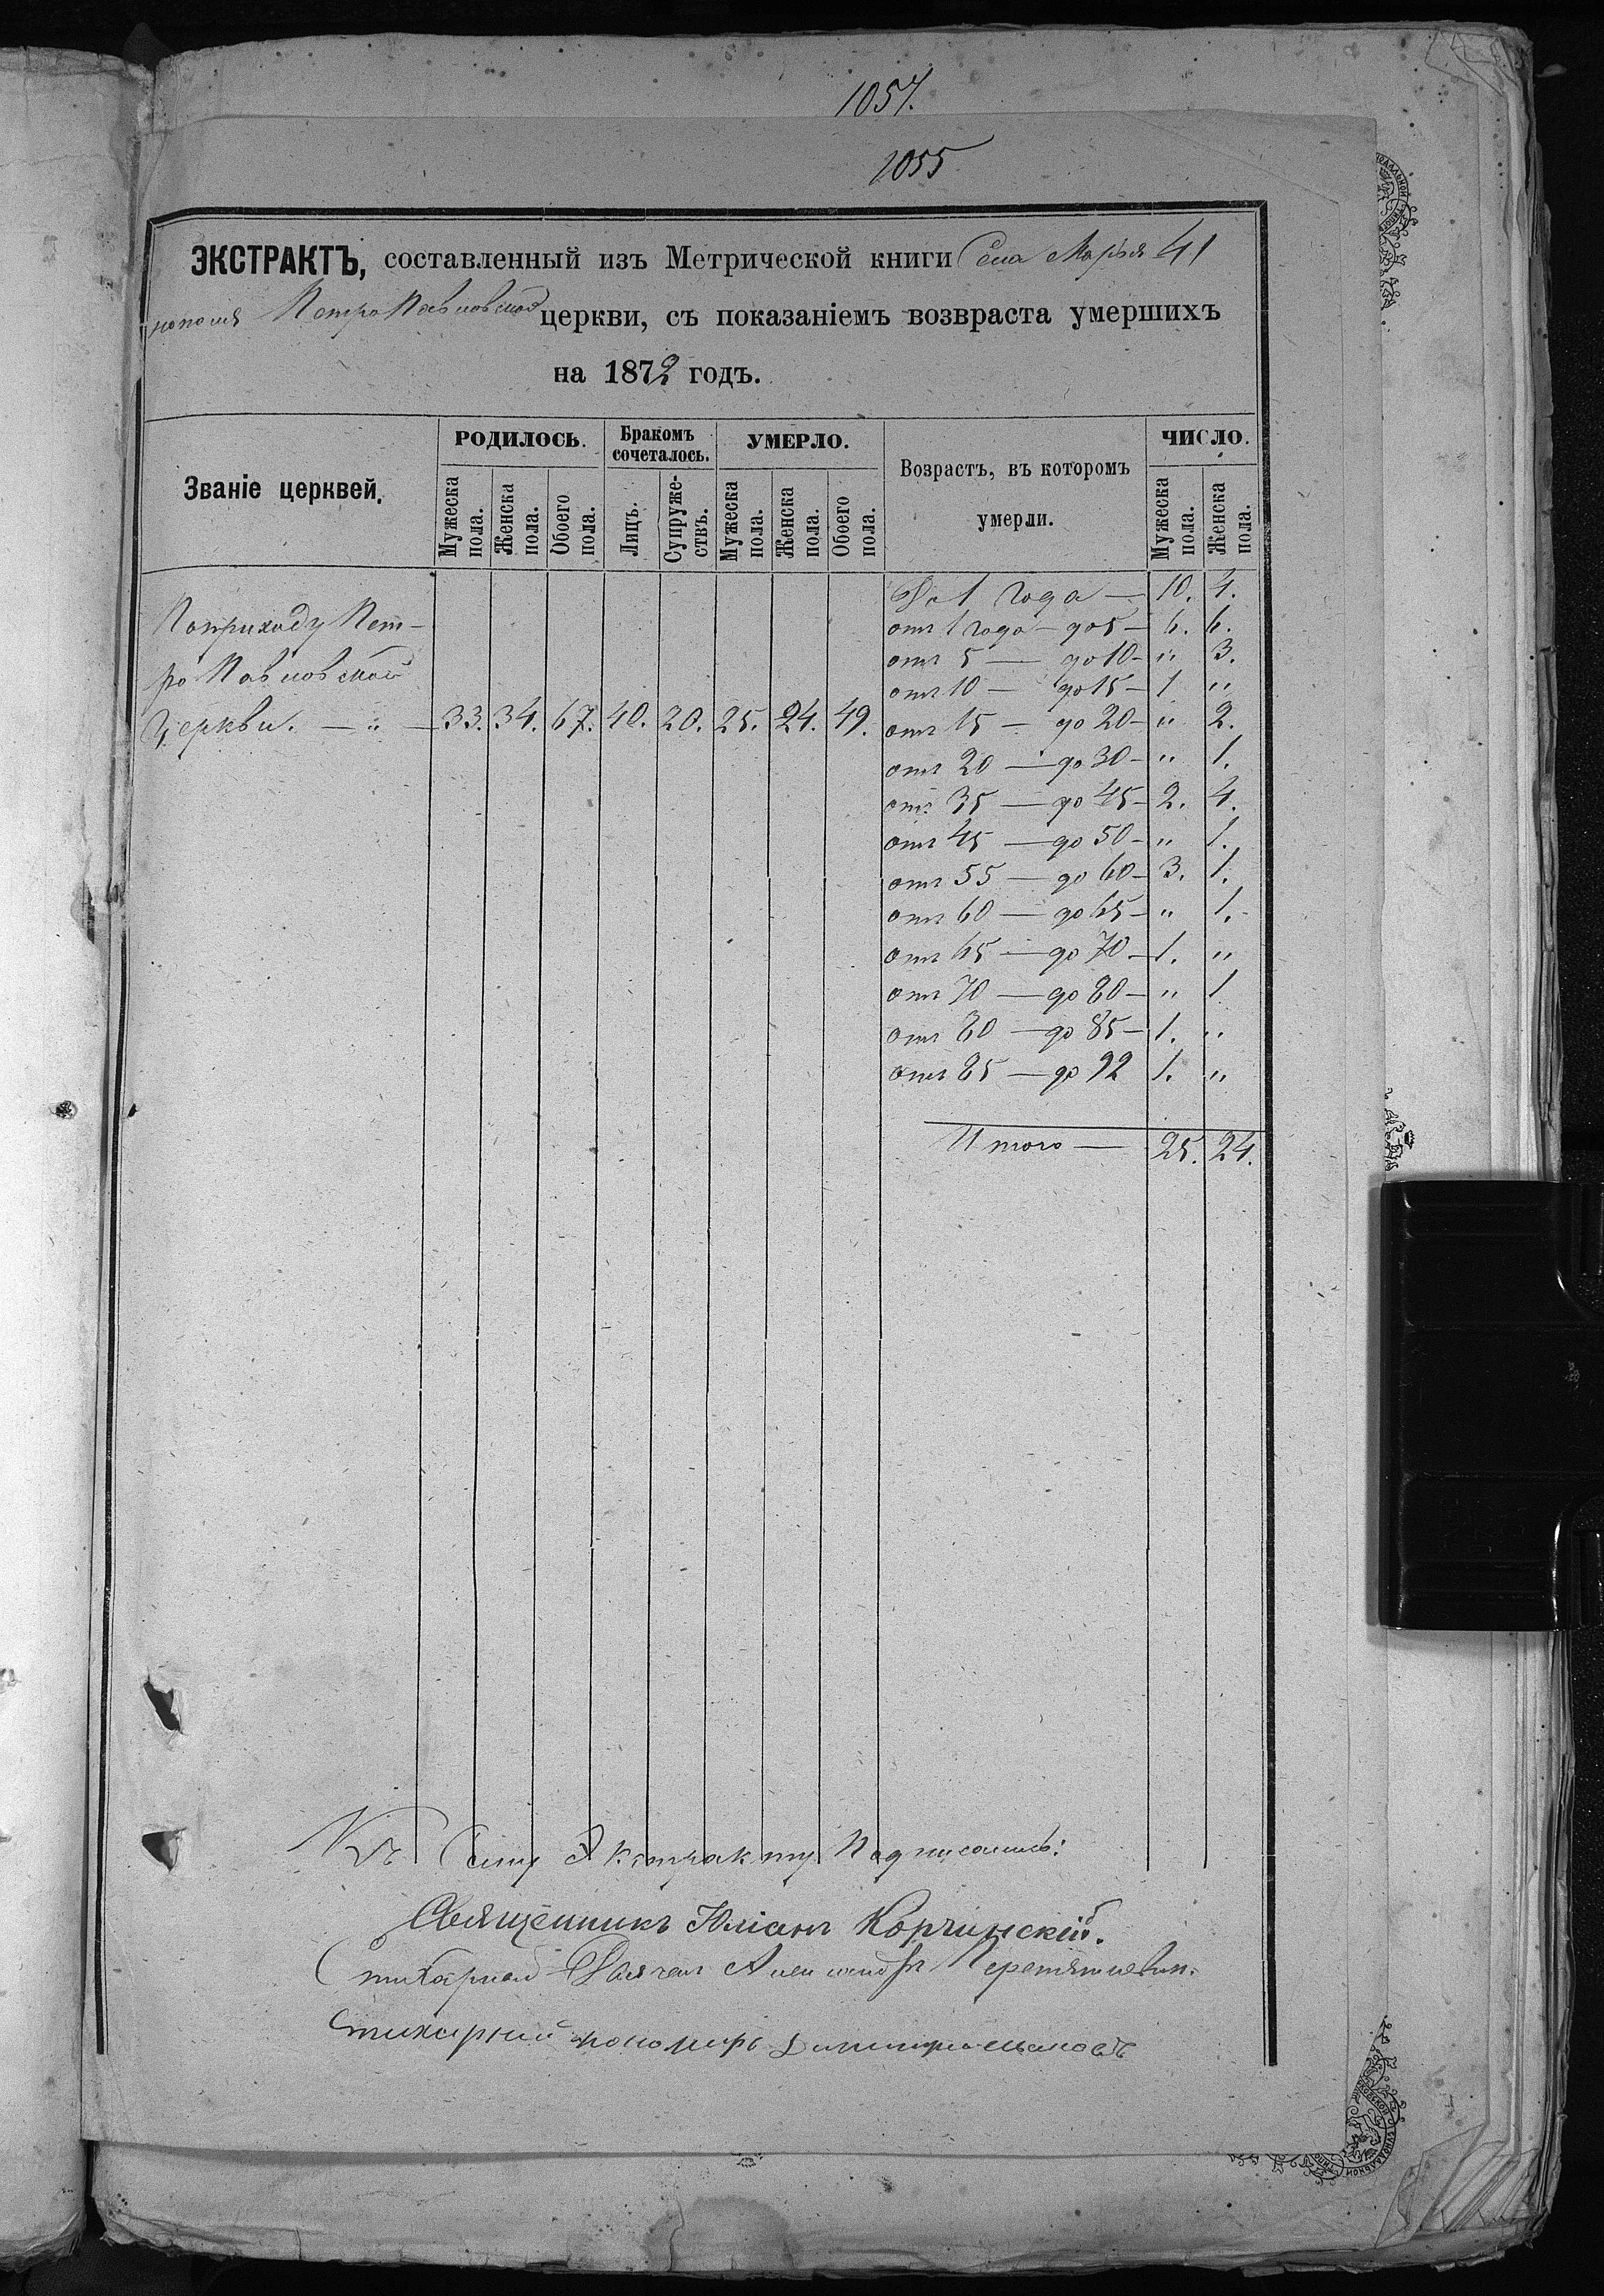 1057.
1055
ЭКСТРАКТЪ, составленный изъ Метрической книги Села Марья 41
нополя ПетроПавловской церкви, съ показаніемъ возвраста умершихъ
на 1872 годъ.
Званіе церквей. РОДИЛОСЬ. Бракомъ сочеталось. УМЕРЛО. Возрастъ, въ которомъ умерли. ЧИСЛО.
Мужеска пола. Женска пола. Обоего пола. Лицъ. Супружествъ. Мужеска пола. Женска пола. Обоего пола. Мужеска пола. Женска пола.
По приходу Пет-
ро Павловской
Церкви. — „ — 33. 34. 67. 40. 20. 25. 24. 49.
До 1 года — 10. 4.
отъ 1 года — до 5 — 6. 6.
отъ 5 — до 10 — „ 3.
отъ 10 — до 15 — 1 „
отъ 15 — до 20 — „ 2.
отъ 20 — до 30 — „ 1.
отъ 35 — до 45 — 2. 4.
отъ 45 — до 50 — „ 1.
отъ 55 — до 60 — 3. 1.
отъ 60 — до 65 — „ 1.
отъ 65 — до 70 — 1. „
отъ 70 — до 80 — „ 1
отъ 80 — до 85 — 1. „
отъ 85 — до 92 1. „
Итого — 25. 24.
Къ Сему Экстракту Подписались:
Священникъ Юліанъ Корчинскій.
Стихарный Дьячекъ Александръ
Стихарный пономарь